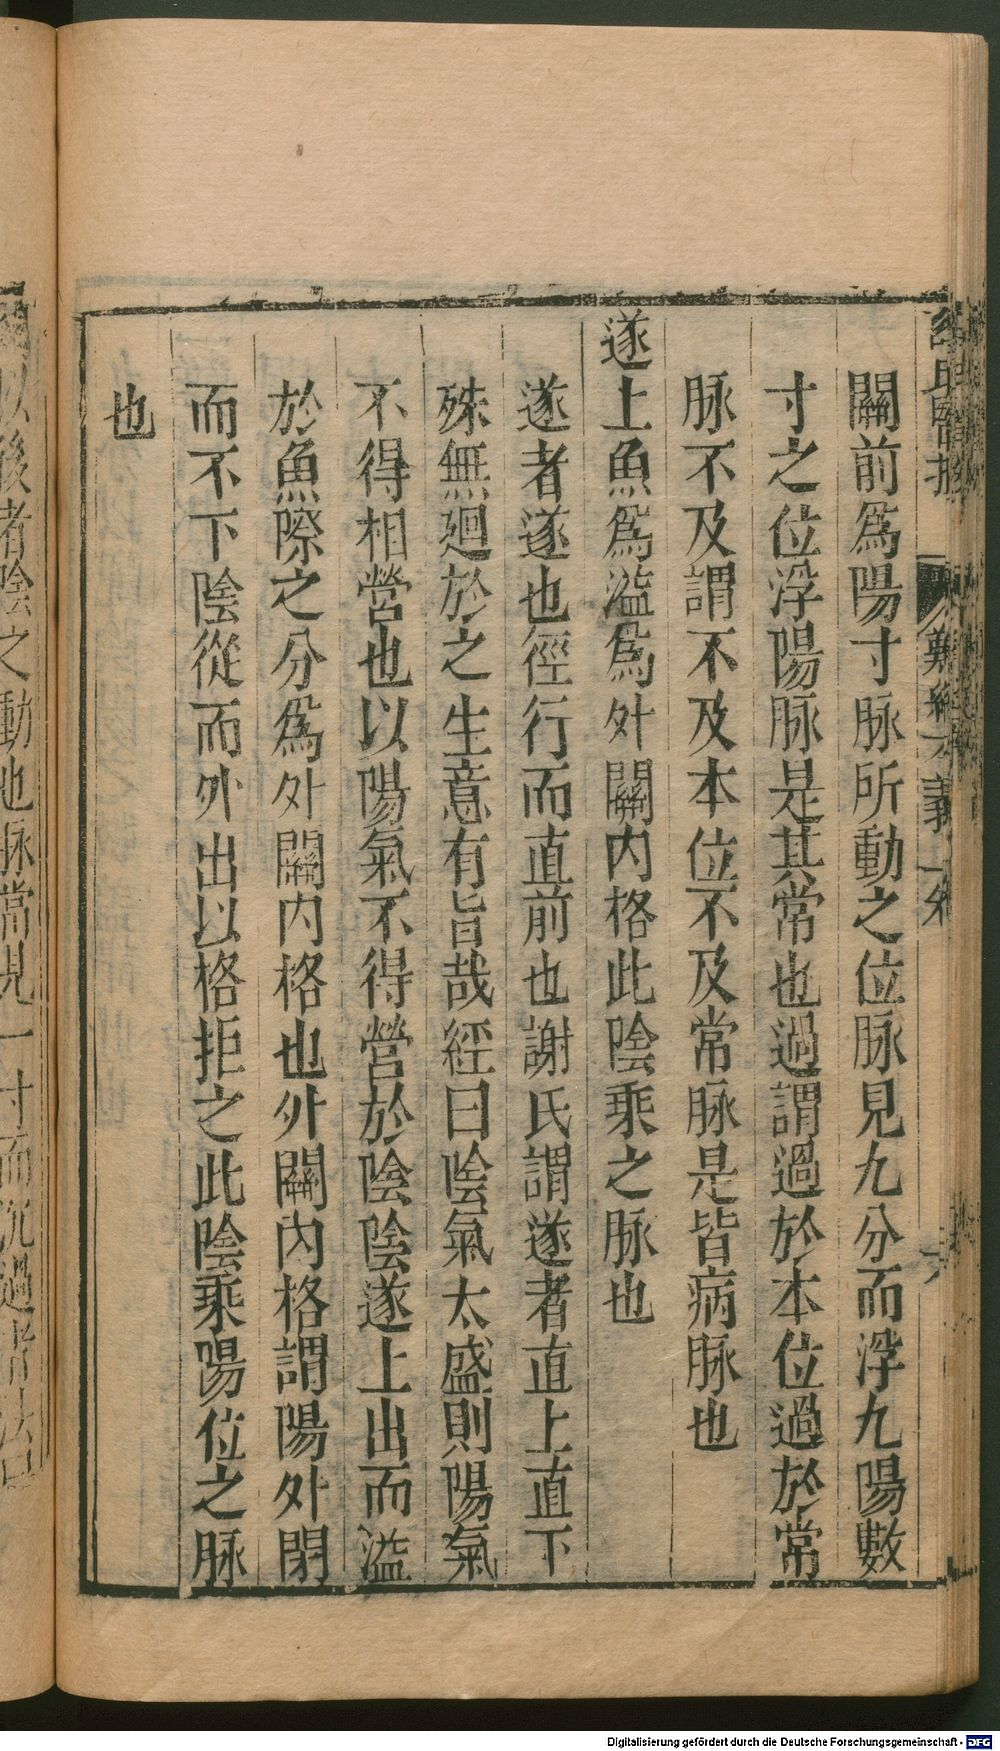 關前爲陽寸脉所動之位脉見九分而浮九陽數
寸之位浮陽脉是其常也過謂過於本位過於常
脉不及謂不及本位不及常脉是皆病脉也
遂上魚爲溢爲外關內格此陰乘之脉也
遂者遂也徑行而直前也謝氏謂遂者直上直下
殊無廻於之生意有旨哉經曰陰氣太盛則陽氣
不得相營也以陽氣不得營於陰陰遂上出而溢
於魚際之分爲外關內格也外關內格謂陽外閉
而不下陰從而外出以格拒之此陰乘陽位之脉
也
以後者陰之動也脉當見一寸而沉過者法曰
Digitalisierung gefördert durch die Deutsche Forschungsgemeinschaft - DFG